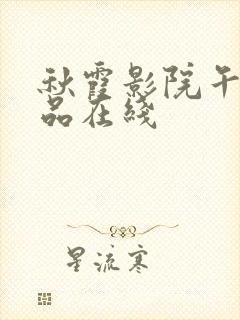 秋霞影院午
品在线
星流寒